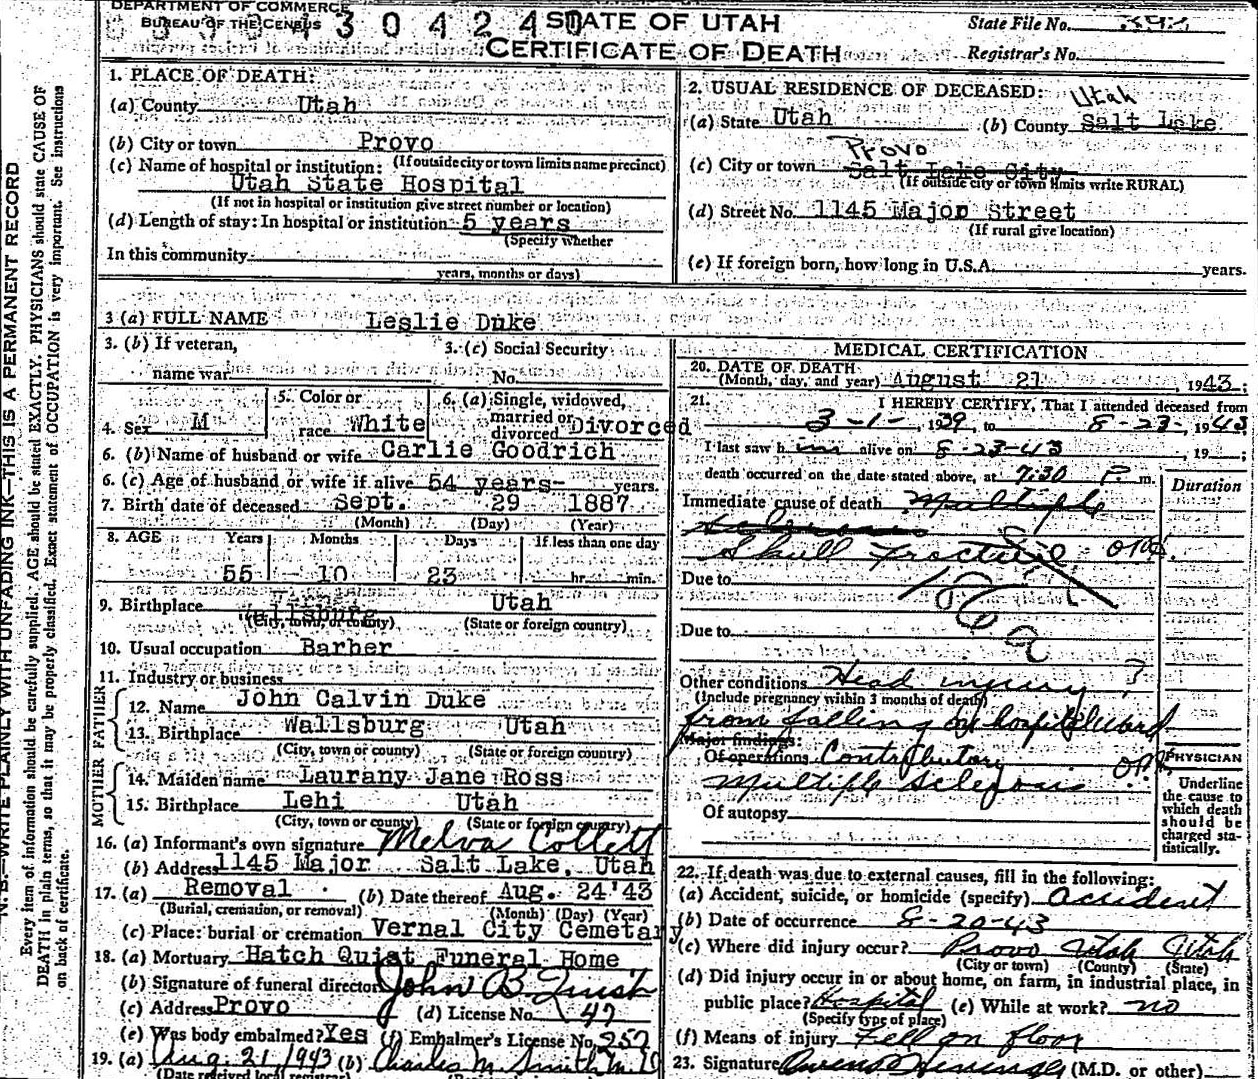 DEPARTMENT OF COMMERCE
BUREAU OF THE CENSUS
30424
STATE OF UTAH
CERTIFICATE OF DEATH
State File No.
Registrar's No.
N. B.—WRITE PLAINLY WITH UNFADING INK—THIS IS A PERMANENT RECORD
Every item of information should be carefully supplied. AGE should be stated EXACTLY. PHYSICIANS should state CAUSE OF
DEATH in plain terms, so that it may be properly classified. Exact statement of OCCUPATION is very important. See instructions
on back of certificate.
1. PLACE OF DEATH:
(a) County Utah
(b) City or town Provo
(If outside city or town limits name precinct)
(c) Name of hospital or institution:
Utah State Hospital
(If not in hospital or institution give street number or location)
(d) Length of stay: In hospital or institution 5 years
(Specify whether
In this community
years, months or days)
2. USUAL RESIDENCE OF DECEASED:
Utah
(a) State Utah (b) County Salt Lake
Provo
(c) City or town Salt Lake City
(If outside city or town limits write RURAL)
(d) Street No. 1145 Major Street
(If rural give location)
(e) If foreign born, how long in U.S.A. years.
3 (a) FULL NAME Leslie Duke
3. (b) If veteran,
name war
3. (c) Social Security
No.
4. Sex M
5. Color or
race White
6. (a) Single, widowed,
married or
divorced Divorced
6. (b) Name of husband or wife Carlie Goodrich
6. (c) Age of husband or wife if alive 54 years- years.
7. Birth date of deceased Sept. 29 1887
(Month) (Day) (Year)
8. AGE Years Months Days If less than one day
55 10 23 hr. min.
9. Birthplace Wallsburg Utah
(City, town, or county) (State or foreign country)
10. Usual occupation Barber
11. Industry or business
FATHER
12. Name John Calvin Duke
13. Birthplace Wallsburg Utah
(City, town or county) (State or foreign country)
MOTHER
14. Maiden name Laurany Jane Ross
15. Birthplace Lehi Utah
(City, town or county) (State or foreign country)
16. (a) Informant's own signature Melva Collett
(b) Address 1145 Major Salt Lake, Utah
17. (a) Removal (b) Date thereof Aug. 24 '43
(Burial, cremation, or removal) (Month) (Day) (Year)
(c) Place: burial or cremation Vernal City Cemetary
18. (a) Mortuary Hatch Quist Funeral Home
(b) Signature of funeral director John B Quist
(c) Address Provo (d) License No. 47
(e) Was body embalmed? Yes (f) Embalmer's License No. 257
19. (a) Aug. 21, 1943 (b) Charles M. Smith M.D
(Date received local registrar)
MEDICAL CERTIFICATION
20. DATE OF DEATH
(Month, day, and year) August 21, 1943;
21. I HEREBY CERTIFY, That I attended deceased from
3-1-, 1939, to 8-23-, 1943
I last saw him alive on 8-23-43, 19 ;
death occurred on the date stated above, at 7:30 P. m.
Duration
Immediate cause of death Multiple
Skull Fracture
Due to
Due to
Other conditions Head injury ?
(Include pregnancy within 3 months of death)
from falling on hospital ward
Major findings:
Of operations Contributory
Multiple Sclerosis
Of autopsy
PHYSICIAN
Underline
the cause to
which death
should be
charged sta-
tistically.
22. If death was due to external causes, fill in the following:
(a) Accident, suicide, or homicide (specify) accident
(b) Date of occurrence 8-20-43
(c) Where did injury occur? Provo Utah Utah
(City or town) (County) (State)
(d) Did injury occur in or about home, on farm, in industrial place, in
public place? Hospital (e) While at work? no
(Specify type of place)
(f) Means of injury Fell on floor
23. Signature (M.D. or other)